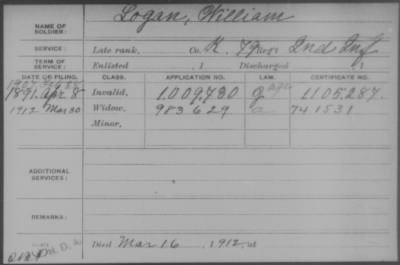 Logan, William
NAME OF SOLDIER:
SERVICE: Late rank, Co. K, 2nd Inf
TERM OF SERVICE: Enlisted , 1 Discharged , 1
DATE OF FILING. CLASS. APPLICATION NO. LAW. CERTIFICATE NO.
1891 Apr 8 Invalid, 1.009.730 1105.287.
1912 Mar 30 Widow, 983629 741531
Minor,
ADDITIONAL SERVICES:
REMARKS:
Died Mar 16, 1912, at